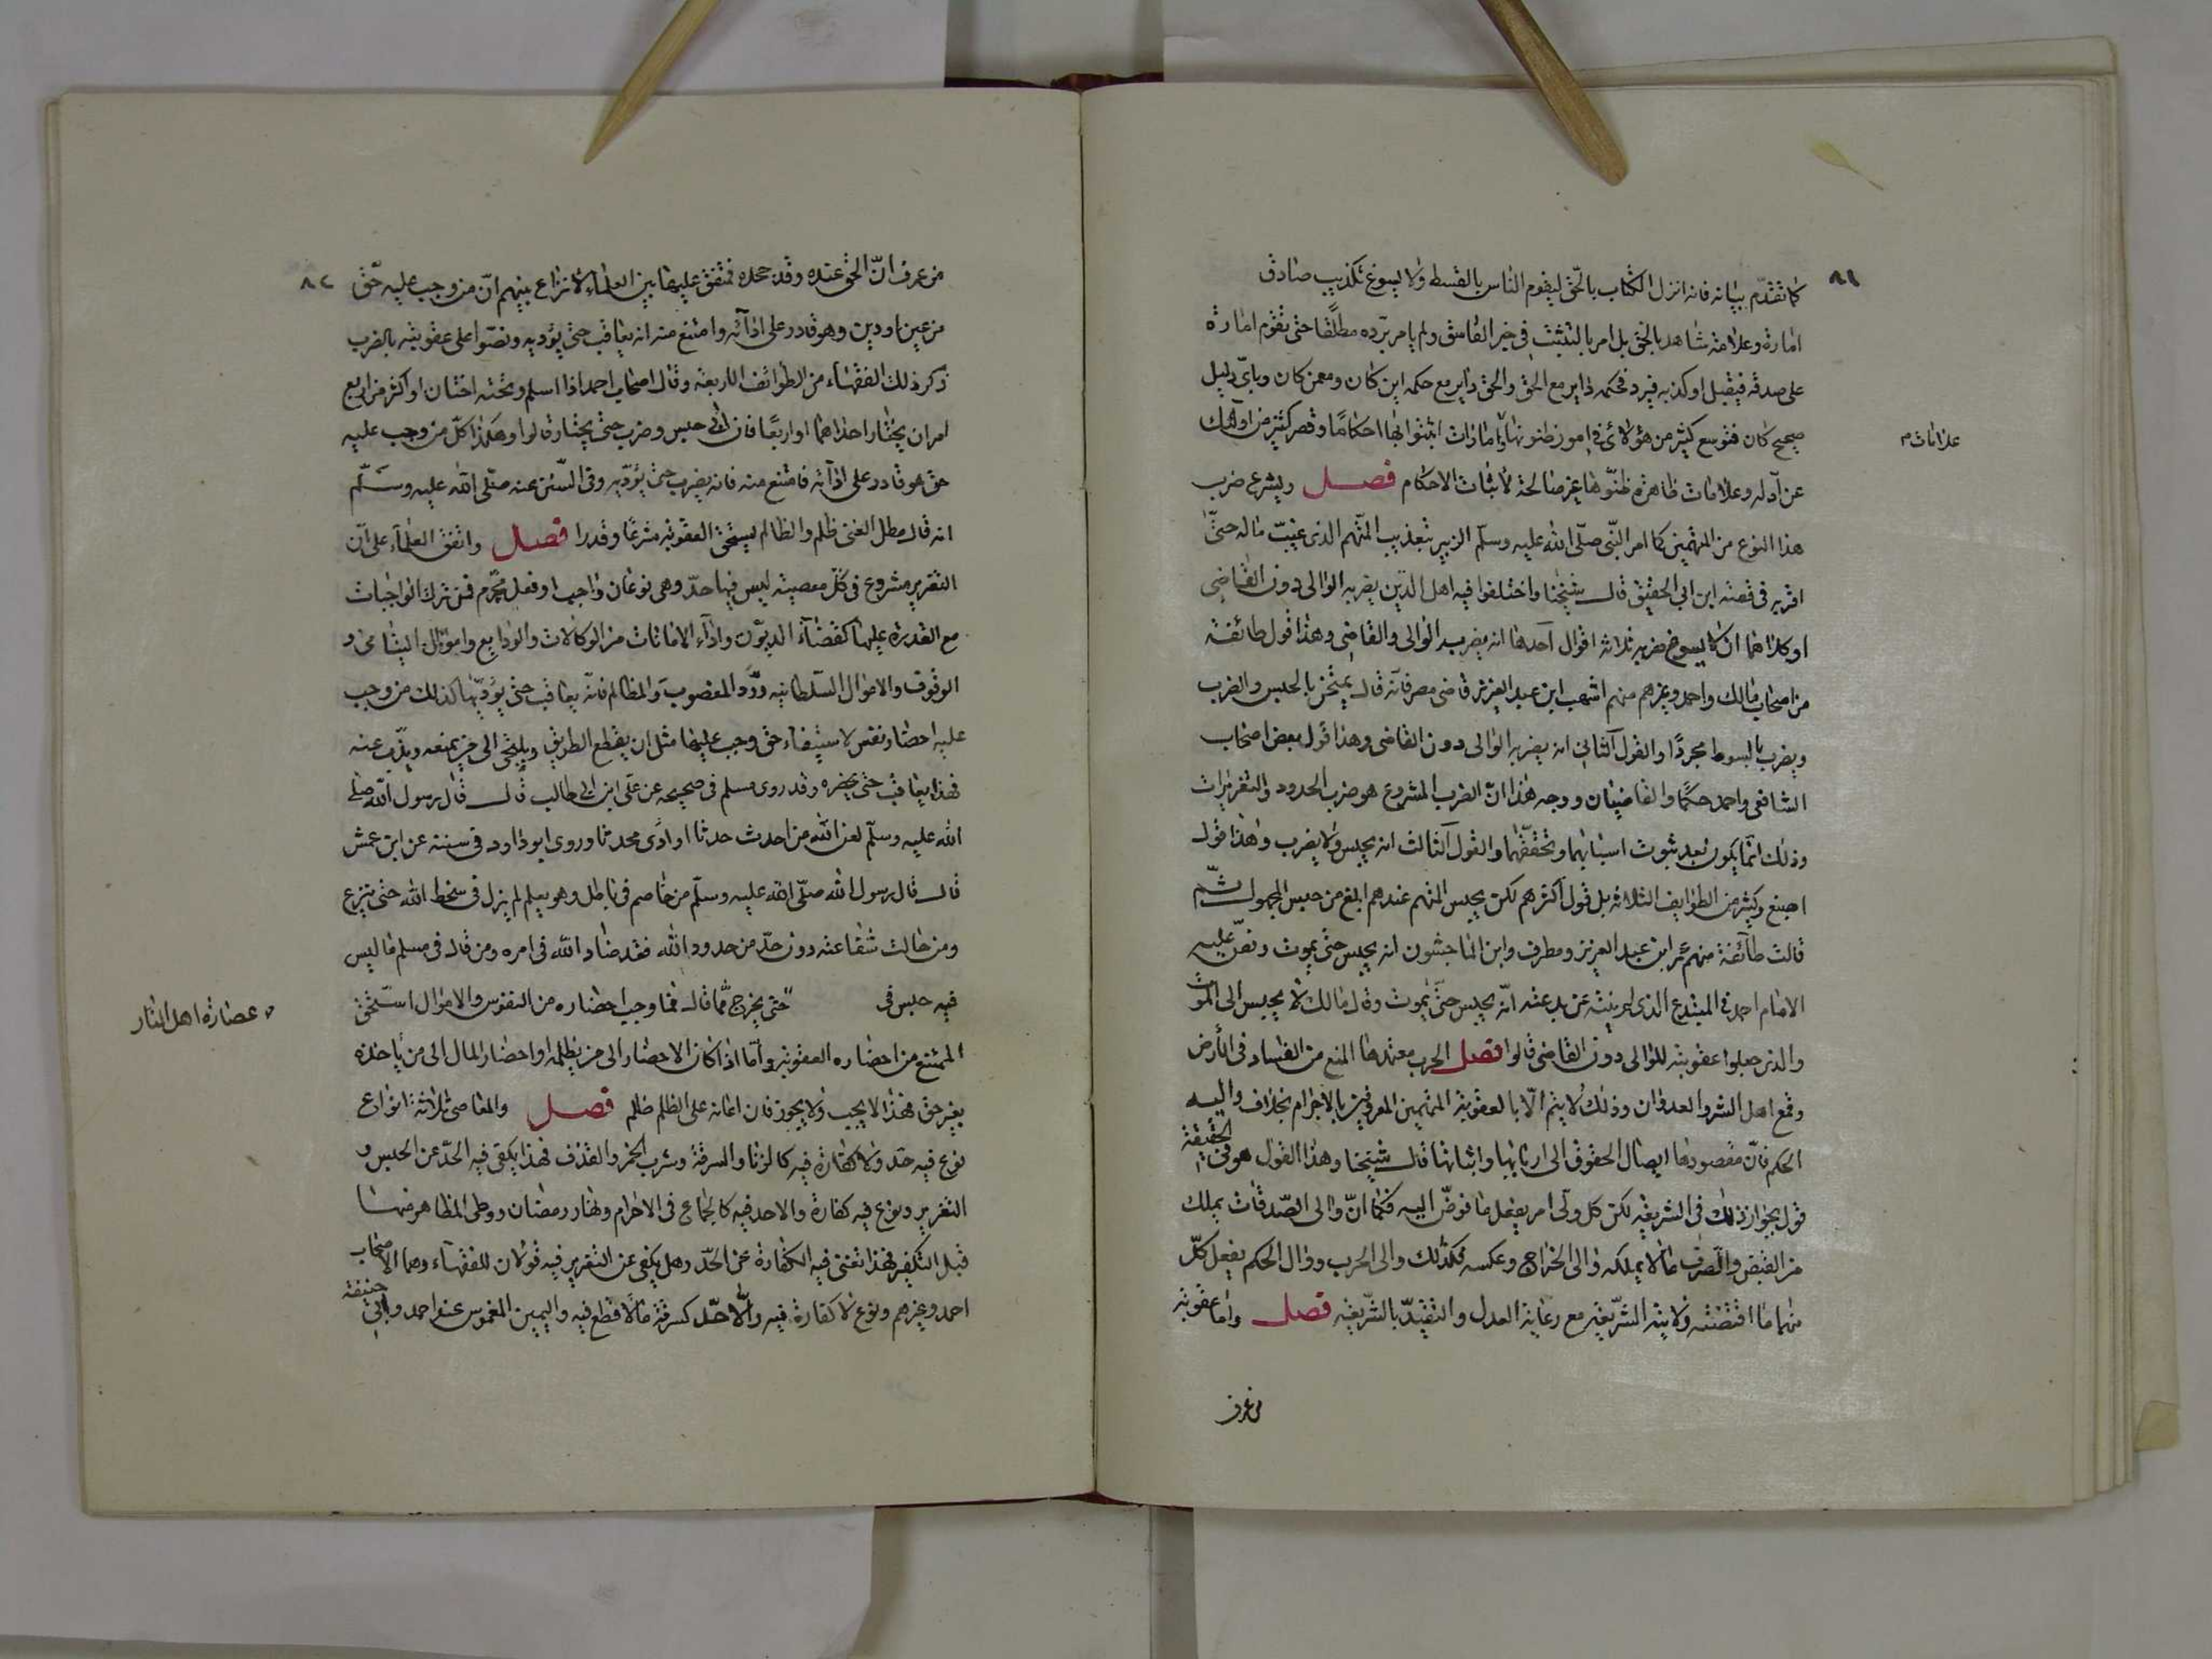 ٨١
كما تقدّم بيانه فانه انزل الكتاب بالحقّ ليقوم الناس بالقسط ولا يسوغ تكذيب صادق
امارة وعلامة شاهد بالحق بل امر بالتثبت في خبر الفاسق ولم يامر بردّه مطلقا حتى تقوم امارة
على صدقه فيقبل او كذبه فيرد فحكمه داير مع الحق والحق داير مع حكمه اين كان ومع من كان وبايّ دليل
صحيح كان فتوسع كثير من هؤلاء في امور ظنونها امارات اثبتوا بها احكاما وقصر كثير من اولئك
علامات م
عن ادله وعلامات ظاهرة ظنّوها غير صالحة لاثبات الاحكام فصل ويشرع ضرب
هذا النوع من المتهمين كما امر النّبي صلّى الله عليه وسلّم الزبير بتعذيب المتّهم الذى غيّب ماله حتّى
اقر به في قصته ابن ابي الحقيق قال شيخنا واختلفوا فيه اهل الدّين يضربه الوالي دون القاضي
او كلاهما ان لا يسوغ ضربه ثلاثه اقوال احدها انه يضربه الوالى والقاضي وهذا قول طائفة
من اصحاب مالك واحمد وغيرهم منهم اشهب ابن عبد العزيز قاضى مصر فانّه قال يمتحن بالحبس والضرب
ويضرب بالسوط مجردا والقول الثانى انه يضربه الوالى دون القاضى وهذا قول بعض اصحاب
الشافعي واحمد حكاه القاضيان ووجه هذا انّ الضرب المشروع هو ضرب الحدود والتعزيرات
وذلك انّما يكون بعد ثبوت اسبابهما وتحققهما والقول الثالث انه يحبس ولا يضرب وهذا قول
اصبغ وكثير من الطوايف الثلاثه بل قول اكثرهم لكن يحبس المتهم عندهم ابلغ من حبس المجهول ثمّ
قالت طائفة منهم عمر ابن عبد العزيز ومطرف وابن الماجشون انه يحبس حتى يموت ونصّ عليه
الامام احمد في المبتدع الذى لم ينته عن بدعته انّه يحبس حتّى يموت وقال مالك لا يحبس الى الموت
والذين جعلوا عقوبته للوالى دون القاضى قالوا فصل الحرب معتمدها المنع من الفساد في الأرض
وقمع اهل الشر والعدوان وذلك لا يتم الّا بالعقوبة المتهمين المعروفين بالاجرام بخلاف واليه
الحكم فانّ مقصودها ايصال الحقوق الى اربابها واثباتها قال شيخنا وهذا القول هو في الحقيقة
قول بجواز ذلك في الشريعه لكن كل ولّى امر يفعل ما فوضّ اليه فكما انّ والى الصّدقات يملك
من القبض والصرف مالا يملكه والى الخراج وعكسه فكذلك والى الحرب ووال الحكم يفعل كلّ
منهما ما اقتضته ولايته الشّريعه مع رعاية العدل والتقيّد بالشّريعه فصل واما عقوبة
من عرف
٨٢
من عرف انّ الحق عنده وقد جحده فمتفق عليها بين العلماء لا نزاع بينهم انّ من وجب عليه حّق
من عين او دين وهو قادر على ادائه وامتنع منه انه يعاقب حتى يؤديه ونصّوا على عقوبته بالضرب
ذكر ذلك الفقهاء من الطوائف الاربعه وقال اصحاب احمد اذا اسلم وتحته اختان او اكثر من اربع
امر ان يختار احداهما او اربعا فان ابى حبس وضرب حتى يختار قالوا وهكذا كلّ من وجب عليه
حق هو قادر على ادائه فامتنع منه فانه يضرب حتى يؤدّيه وفى السّنن عنه صلّى الله عليه وسلّم
انه قال مطل الغنى ظلم والظالم يستحق العقوبه شرعا وقدرا فصل واتفق العلماء على ان
التعزير مشروع في كلّ معصيته ليس فيها حدّ وهي نوعان واجب او فعل محرّم فمن ترك الواجبات
مع القدرة عليها كقضاء الديون واداء الامانات من الوكالات والودايع واموال اليتامى و
الوقوف والاموال السّلطانيه وردّ المغصوب والمظالم فانّه يعاقب حتى يؤديّها كذلك من وجب
عليه احضار نفس لاستيفاء حق وجب عليها مثل ان يقطع الطريق ويلتجى الى من يمنعه ويذب عنه
فهذا يعاقب حتى يحضره وقد روى مسلم في صحيحه عن علي ابن ابي طالب قال قال رسول الله صلى
الله عليه وسلّم لعن الله من احدث حدثا او آوى محدثا وروى ابو داود في سننه عن ابن عمش
قال قال رسول الله صلّى الله عليه وسلّم من خاصم في باطل وهو يعلم لم يزل في سخط الله حتى ينزع
ومن حالت شفاعته دون حدّ من حدود الله فقد ضاد الله في امره ومن قال في مسلم ما ليس
فيه حبس في حتى يخرج ممّا قال فما وجب احضاره من النفوس والاموال استحق
عصارة اهل النار
الممتنع من احضاره العقوبة وامّا اذا كان الاحضار الى من يظلمه او احضار المال الى من يأخذه
بغير حق فهذا لا يجب ولا يجوز فان اعانه على الظلم ظلم فصل والمعاصى ثلاثة انواع
نوع فيه حد ولا كفارة فيه كالزنا والسرقة وشرب الخمر والقذف فهذا يكفى فيه الحدّ عن الحبس و
التعزير ونوع فيه كفارة والاحد فيه كالجماع في الاحرام ونهار رمضان ووطى المظاهر منها
قبل التكفير فهذا تغنى فيه الكفارة عن الحّد وهل يكفى عن التعزير فيه قولان للفقهاء وهما لاصحاب
احمد وغيرهم ونوع لا كفارة فيه ولا حّد كسرقة مالا قطع فيه واليمين الغموس عند احمد وابي حنيفة